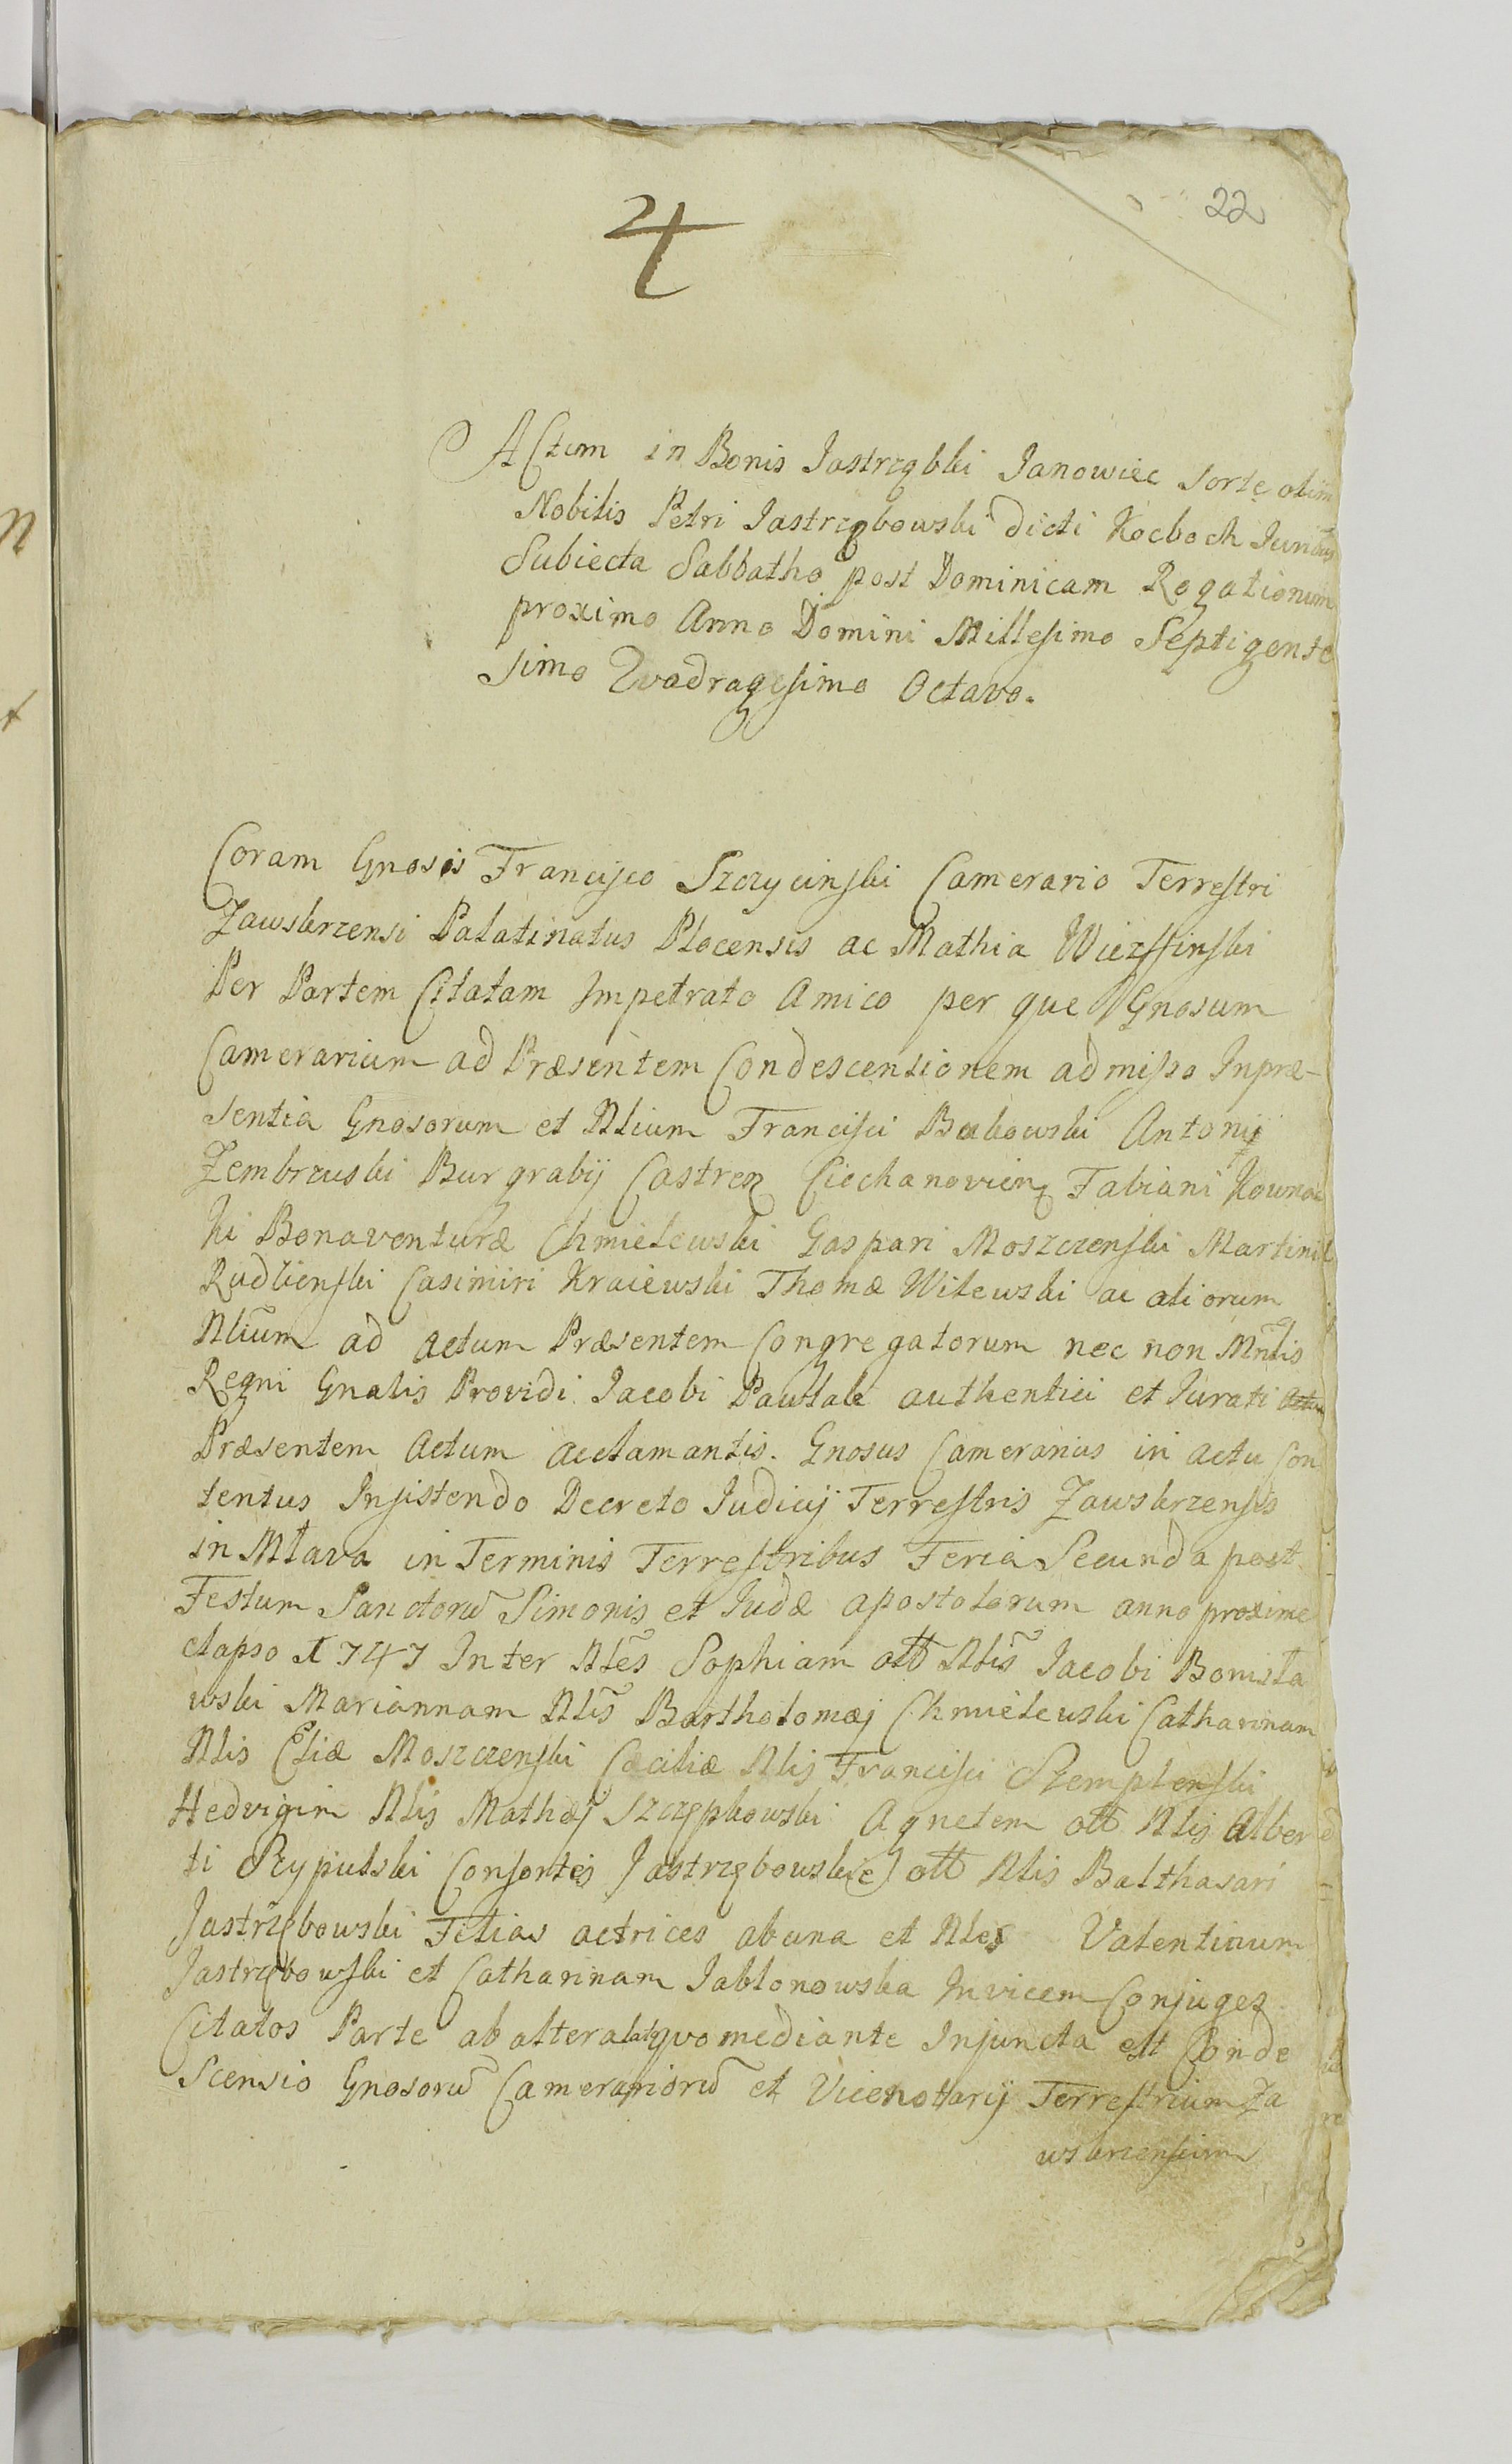 22
4
Actum in Bonis Jastrzębki Janowiec Sorte olim
Nobilis Petri Jastrzębowski dicti Kocboch
Subiecta Sabbatho post Dominicam Rogationum
proximo Anno Domini Millesimo Septigente
simo Qvadragesimo Octavo.
Coram Gnosis Francisco Szczycinski Camerario Terrestri
Zawskrzensi Palatinatus Plocensis ac Mathia
Per Partem Citatam Impetrato Amico per que Gnosum
Camerarium ad Præsentem Condescensionem admisso Inpræ-
sentia Gnosorum et Nlium Francisci Bukowski Antonij
Zembrzuski Burgrabij Castren Ciechanovien Fabiani Kownac
ki Bonaventuræ Chmielewski Gaspari Moszczenski Martini
Rudlienski Casimiri Kraiewski Thomæ Witewski ac aliorum
Nlium ad actum Præsentem Congregatorum nec non Mntis
Regni Gnalis Providi Jacobi Pawlak authentici et Jurati
Præsentem actum acclamantis. Gnosus Camerarius in actu Con
tentus Insistendo Decreto Judicij Terrestris Zawskrzensis
in Mlava in Terminis Terrestribus Feria Secunda post
Festum Sanctorũ Simonis et Judæ apostolorum anno proxime
elapso 1747 Inter Nles Sophiam olt Nlis Jacobi Bonisla
wski Mariannam Nlis Bartholomæj Chmielewski Catharinam
Nlis Eliæ Moszczenski Cæciliæ Nlis Francisci Szemplenski
Hedvigim Nlis Mathæj Szczepkowski Agnetem olt Nlis Alber
ti Rypinski Consortes Jastrzębowskie olt Nlis Balthasari
Jastrzębowski Filias actrices ab una et Nles Valentinum
Jastrzębowski et Catharinam Jablonowska Invicem Conjuges
Citatos Parte ab altera lat qvo mediante Injuncta est Conde
Scensio Gnosorũ Camerariorũ et Vicenotarij Terrestrium Za
wskrzensium